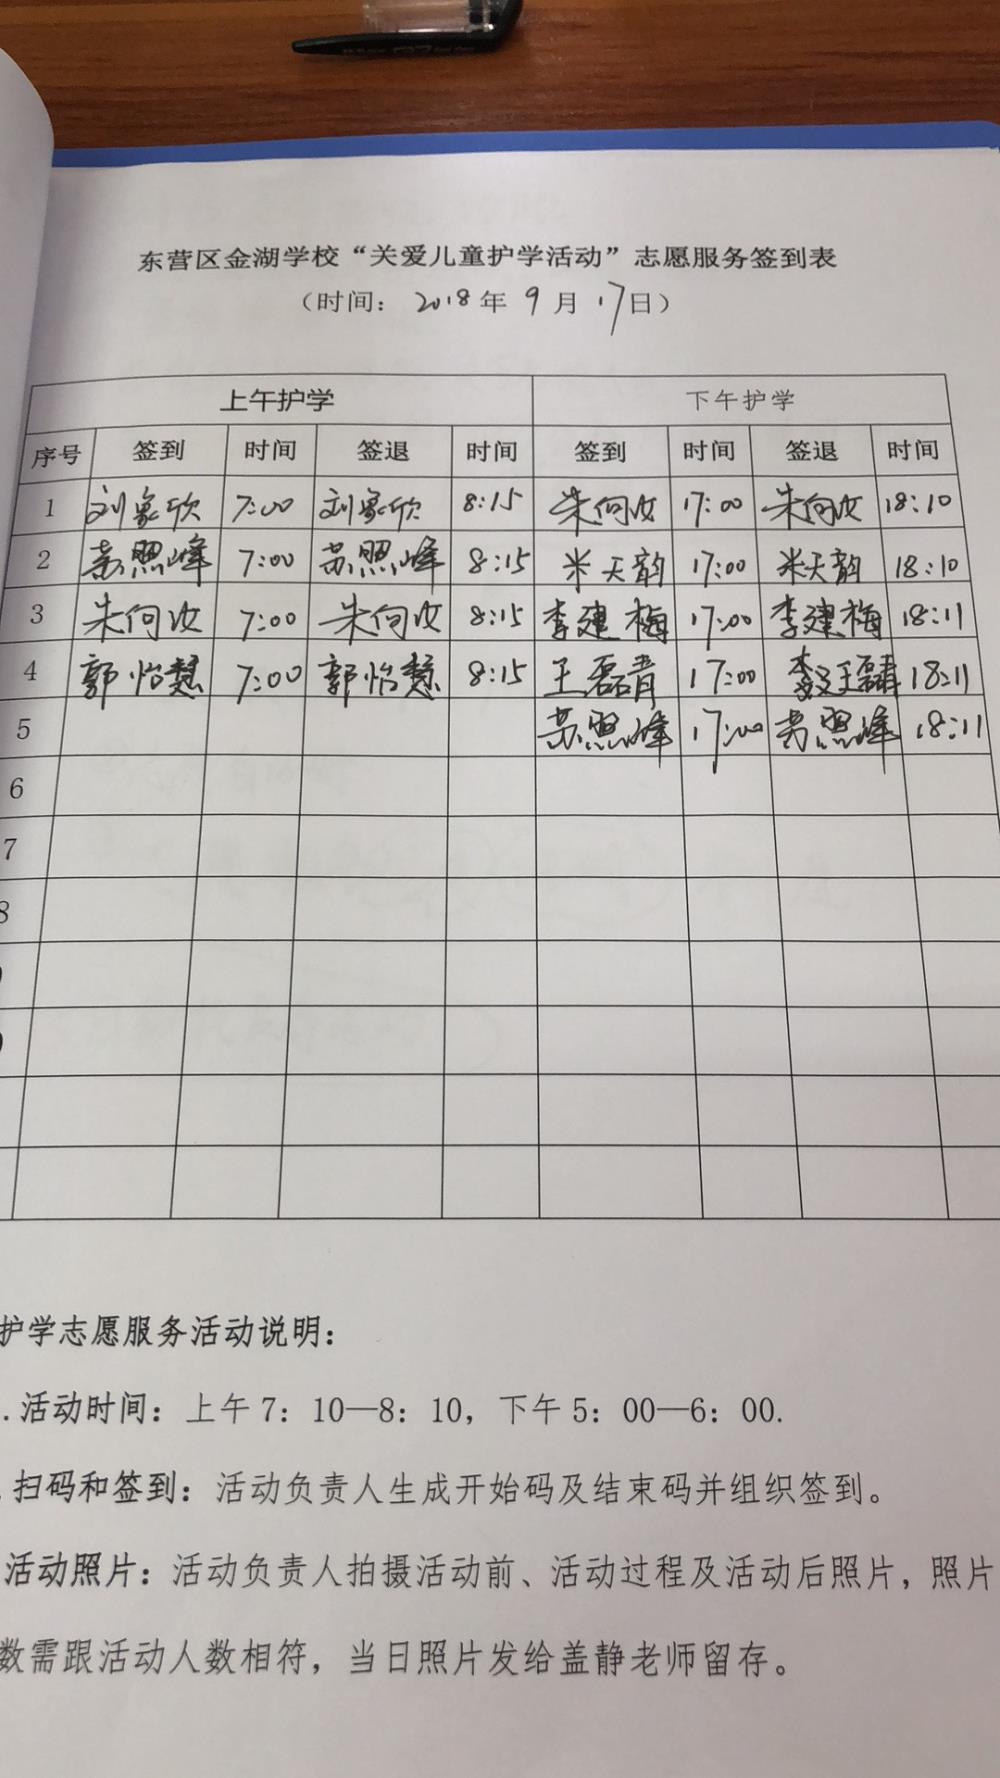 东营区金湖学校“关爱儿童护学活动”志愿服务签到表
（时间： 2018 年 9 月 17 日）
上午护学 下午护学
序号 签到 时间 签退 时间 签到 时间 签退 时间
1 刘家欣 7:00 刘家欣 8:15 朱向汝 17:00 朱向汝 18:10
2 苏照峰 7:00 苏照峰 8:15 米天韵 17:00 米天韵 18:10
3 朱向汝 7:00 朱向汝 8:15 李建梅 17:00 李建梅 18:11
4 郭怡慧 7:00 郭怡慧 8:15 王磊青 17:00 王磊青 18:11
5 苏照峰 17:00 苏照峰 18:11
6
7
8
护学志愿服务活动说明：
.活动时间：上午 7：10—8：10，下午 5：00—6：00.
.扫码和签到：活动负责人生成开始码及结束码并组织签到。
活动照片：活动负责人拍摄活动前、活动过程及活动后照片，照片
数需跟活动人数相符，当日照片发给盖静老师留存。